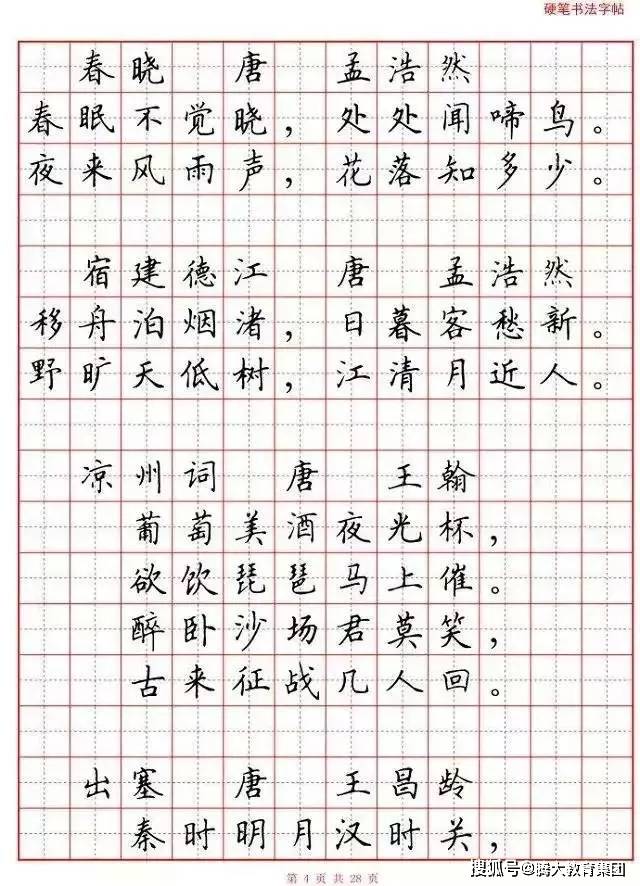 硬笔书法字帖
春晓 唐 孟浩然
春眠不觉晓，处处闻啼鸟。
夜来风雨声，花落知多少。
宿建德江 唐 孟浩然
移舟泊烟渚，日暮客愁新。
野旷天低树，江清月近人。
凉州词 唐 王翰
葡萄美酒夜光杯，
欲饮琵琶马上催。
醉卧沙场君莫笑，
古来征战几人回。
出塞 唐 王昌龄
秦时明月汉时关，
第 4 页 共 28 页
搜狐号@腾大教育集团